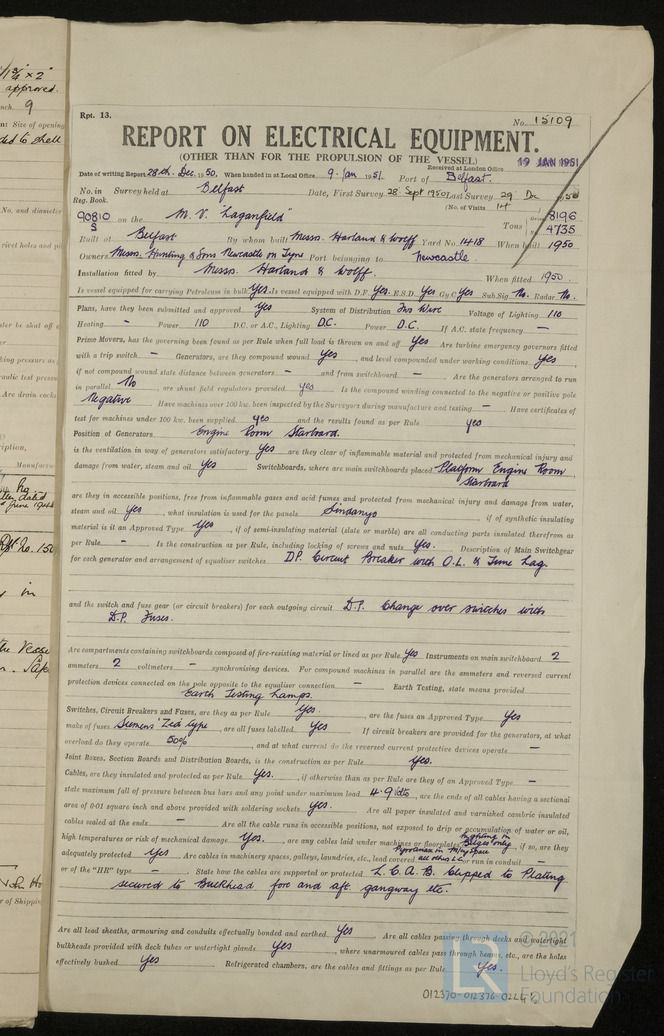 1¾" x 2"
approved.
9
Size of opening
No. and diameter
Rpt. 13.
No. 15109
REPORT ON ELECTRICAL EQUIPMENT.
(OTHER THAN FOR THE PROPULSION OF THE VESSEL)
19 JAN 1951
Received at London Office
Date of writing Report 28th Dec. 1950. When handed in at Local Office 9. Jan 1951. Port of Belfast.
No. in Reg. Book. Survey held at Belfast Date, First Survey 28 Sept 1950 Last Survey 29 Dec 1950
(No. of Visits 14
90810 S on the M.V. "Laganfield" Tons 8196 4735
Built at Belfast By whom built Messrs. Harland & Wolff Yard No. 1418 When built 1950
Owners Messrs. Hunting & Sons Newcastle on Tyne Port belonging to Newcastle
Installation fitted by Messrs. Harland & Wolff. When fitted 1950
Is vessel equipped for carrying Petroleum in bulk Yes. Is vessel equipped with D.F. Yes. E.S.D. Yes Gy.C Yes Sub.Sig No. Radar No.
Plans, have they been submitted and approved. Yes System of Distribution Two Wire Voltage of Lighting 110
Heating - Power 110 D.C. or A.C., Lighting D.C. Power D.C. If A.C. state frequency -
Prime Movers, has the governing been found as per Rule when full load is thrown on and off Yes Are turbine emergency governors fitted
with a trip switch - Generators, are they compound wound Yes, and level compounded under working conditions Yes,
if not compound wound state distance between generators - and from switchboard - Are the generators arranged to run
in parallel No, are shunt field regulators provided yes Is the compound winding connected to the negative or positive pole
Negative Have machines over 100 kw. been inspected by the Surveyors during manufacture and testing - Have certificates of
test for machines under 100 kw. been supplied yes and the results found as per Rule yes
Position of Generators Engine Room Starboard.
is the ventilation in way of generators satisfactory Yes are they clear of inflammable material and protected from mechanical injury and
damage from water, steam and oil Yes Switchboards, where are main switchboards placed Platform Engine Room
Starboard
are they in accessible positions, free from inflammable gases and acid fumes and protected from mechanical injury and damage from water,
steam and oil Yes, what insulation is used for the panels Sindanyo if of synthetic insulating
material is it an Approved Type Yes, if of semi-insulating material (slate or marble) are all conducting parts insulated therefrom as
per Rule - Is the construction as per Rule, including locking of screws and nuts Yes. Description of Main Switchgear
for each generator and arrangement of equaliser switches D.P. Circuit Breaker with O.L. & Time Lag.
and the switch and fuse gear (or circuit breakers) for each outgoing circuit D.P. Change over switches with
D.P. Fuses.
Are compartments containing switchboards composed of fire-resisting material or lined as per Rule Yes Instruments on main switchboard 2
ammeters 2 voltmeters - synchronising devices. For compound machines in parallel are the ammeters and reversed current
protection devices connected on the pole opposite to the equaliser connection - Earth Testing, state means provided
Earth Testing Lamps.
Switches, Circuit Breakers and Fuses, are they as per Rule Yes., are the fuses an Approved Type Yes
make of fuses Siemens 'Zed type, are all fuses labelled Yes If circuit breakers are provided for the generators, at what
overload do they operate 50%, and at what current do the reversed current protective devices operate -
Joint Boxes, Section Boards and Distribution Boards, is the construction as per Rule Yes.
Cables, are they insulated and protected as per Rule Yes., if otherwise than as per Rule are they of an Approved Type -
state maximum fall of pressure between bus bars and any point under maximum load 4.9 Volts, are the ends of all cables having a sectional
area of 0·01 square inch and above provided with soldering sockets Yes. Are all paper insulated and varnished cambric insulated
cables sealed at the ends - Are all the cable runs in accessible positions, not exposed to drip or accumulation of water or oil,
high temperatures or risk of mechanical damage Yes., are any cables laid under machines or floorplates Lighting in Bilges only, if so, are they
adequately protected Yes Are cables in machinery spaces, galleys, laundries, etc., lead covered all others L.C. run in conduit -
or of the "HR" type - State how the cables are supported or protected L.C.A.B. Clipped to Plating
secured to Bulkhead fore and aft gangway etc.
Are all lead sheaths, armouring and conduits effectually bonded and earthed Yes Are all cables passing through decks and watertight
bulkheads provided with deck tubes or watertight glands Yes, where unarmoured cables pass through beams, etc., are the holes
effectively bushed Yes Refrigerated chambers, are the cables and fittings as per Rule Yes.
© 2021
Lloyd's Register
Foundation